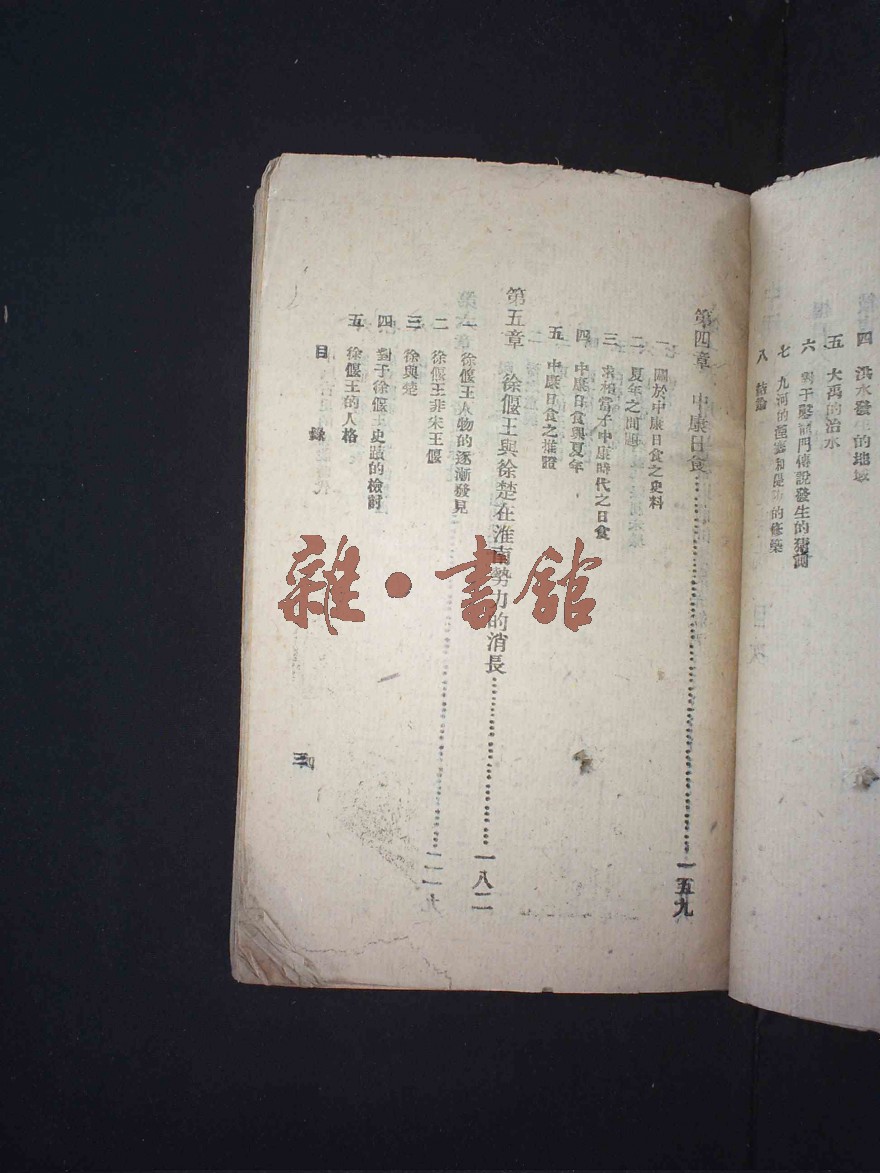 四　洪水發生的地域
五　大禹的治水
六　對于 門傳說發生的猜測
七　九河的 和 的修築
八　結論
第四章　中康日食……一五九
一　關於中康日食之史料
二　夏年之問題
三　 相當于中康時代之日食
四　中康日食與夏年
五　中康日食之推證
第五章　徐偃王與徐楚在淮南勢力的消長……一八二
一　徐偃王人物的逐漸發見
二　徐偃王非宋王偃
三　徐與楚
四　對于徐偃王史蹟的檢討
五　徐偃王的人格
目錄
三
雜·書館